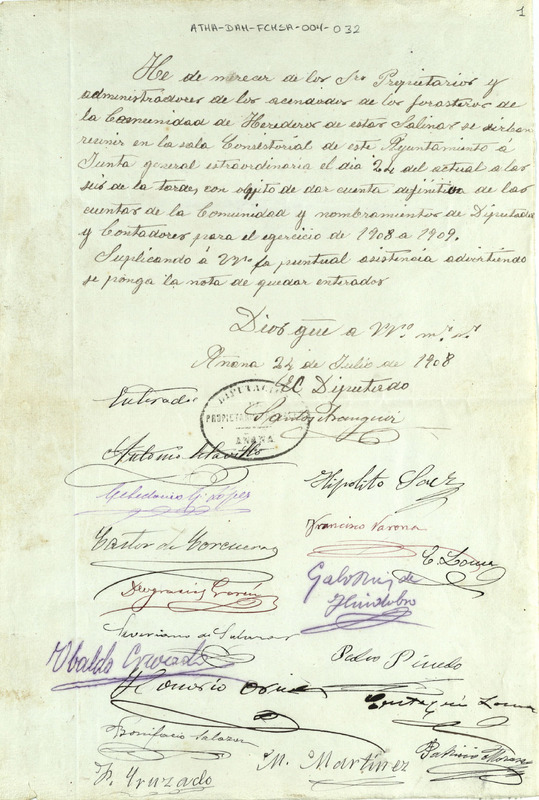 1
ATHA-DAH-FCHSA-004-032
He de merecer de los Sres Propietarios y
administradores de los acendados de los forasteros de
la Comunidad de Herederos de estas Salinas se sirban
reunir en la sala Consistorial de este Ayuntamiento a
Junta general estraordinaria el dia 24 del actual a las
seis de la tarde, con objeto de dar cuenta definitiva de las
cuentas de la Comunidad y nombramientos de Diputado
y Contadores para el egercicio de 1908 a 1909.
Suplicando á VV. la puntual asistencia advirtiendo
se ponga la nota de quedar enterados
Dios gue a VV. ms. as.
Añana 24 de Julio de 1908
El Diputado
Enterado
DIPUTACION
PROPIETARIOS
AÑANA
Santos
Antonio
Celedonio G. López
Hipolito Saez
Castor de Corcuera
Francisco Varona
C. Loma
Deogracias
Galo Ruiz de
Huidobro
Severiano de Salazar
Ubaldo
Pedro Pinedo
Honorio
Eustaquio Loma
Bonifacio Salazar
F. Cruzado
M. Martinez
Patricio